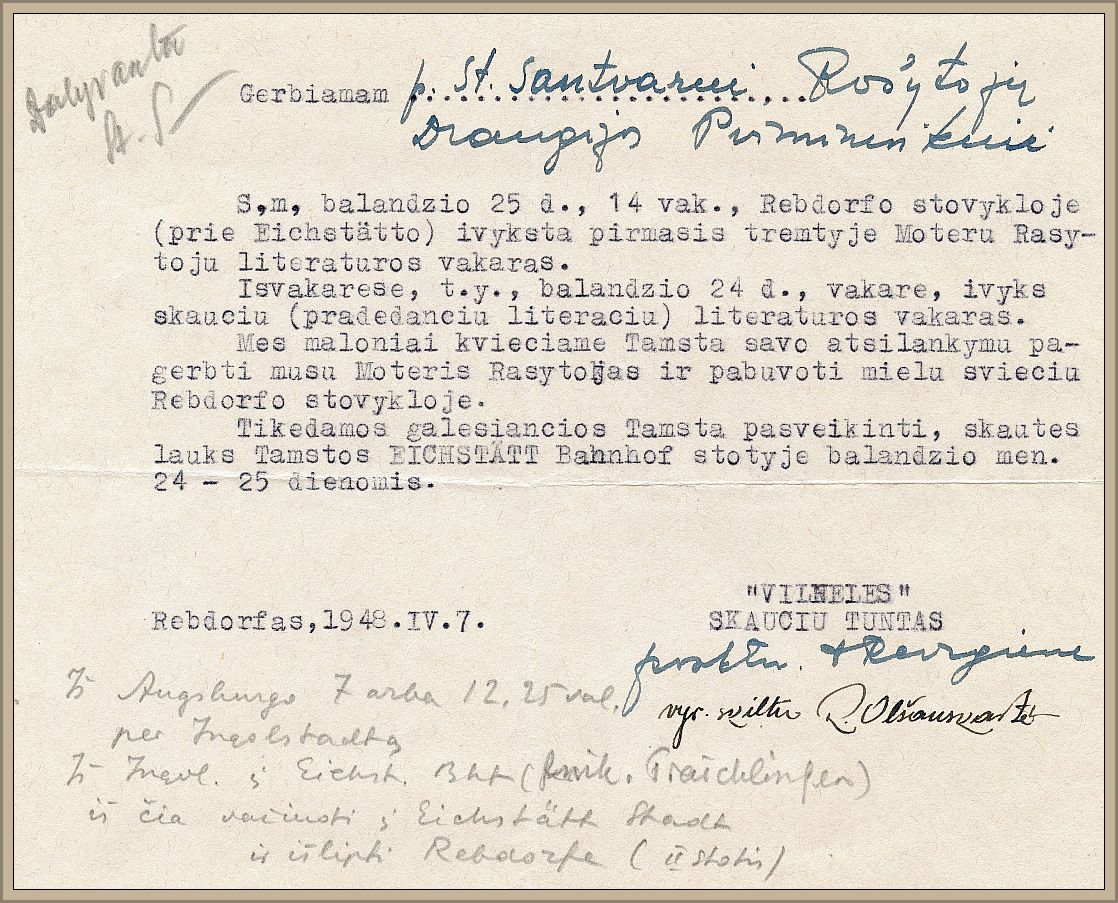 Dalyvauta
St. S
Gerbiamam p. St. Santvarui, Rašytojų
Draugijos Pirmininkui
S,m, balandzio 25 d., 14 vak., Rebdorfo stovykloje
(prie Eichstätto) ivyksta pirmasis tremtyje Moteru Rasy-
toju literaturos vakaras.
Isvakarese, t.y., balandzio 24 d., vakare, ivyks
skauciu (pradedanciu literaciu) literaturos vakaras.
Mes maloniai kvieciame Tamsta savo atsilankymu pa-
gerbti musu Moteris Rasytojas ir pabuvoti mielu svieciu
Rebdorfo stovykloje.
Tikedamos galesiancios Tamsta pasveikinti, skautes
lauks Tamstos EICHSTÄTT Bahnhof stotyje balandzio men.
24 - 25 dienomis.
"VILNELES"
Rebdorfas,1948.IV.7.
SKAUCIU TUNTAS
vyr. skiltn
Iš Augsburgo 7 arba 12,25 val.
per Ingolstadtą
Iš Ingol. į Eichst. Bhf (
iš čia važiuoti į Eichstätt Stadt
ir išlipti Rebdorfe (II stotis)